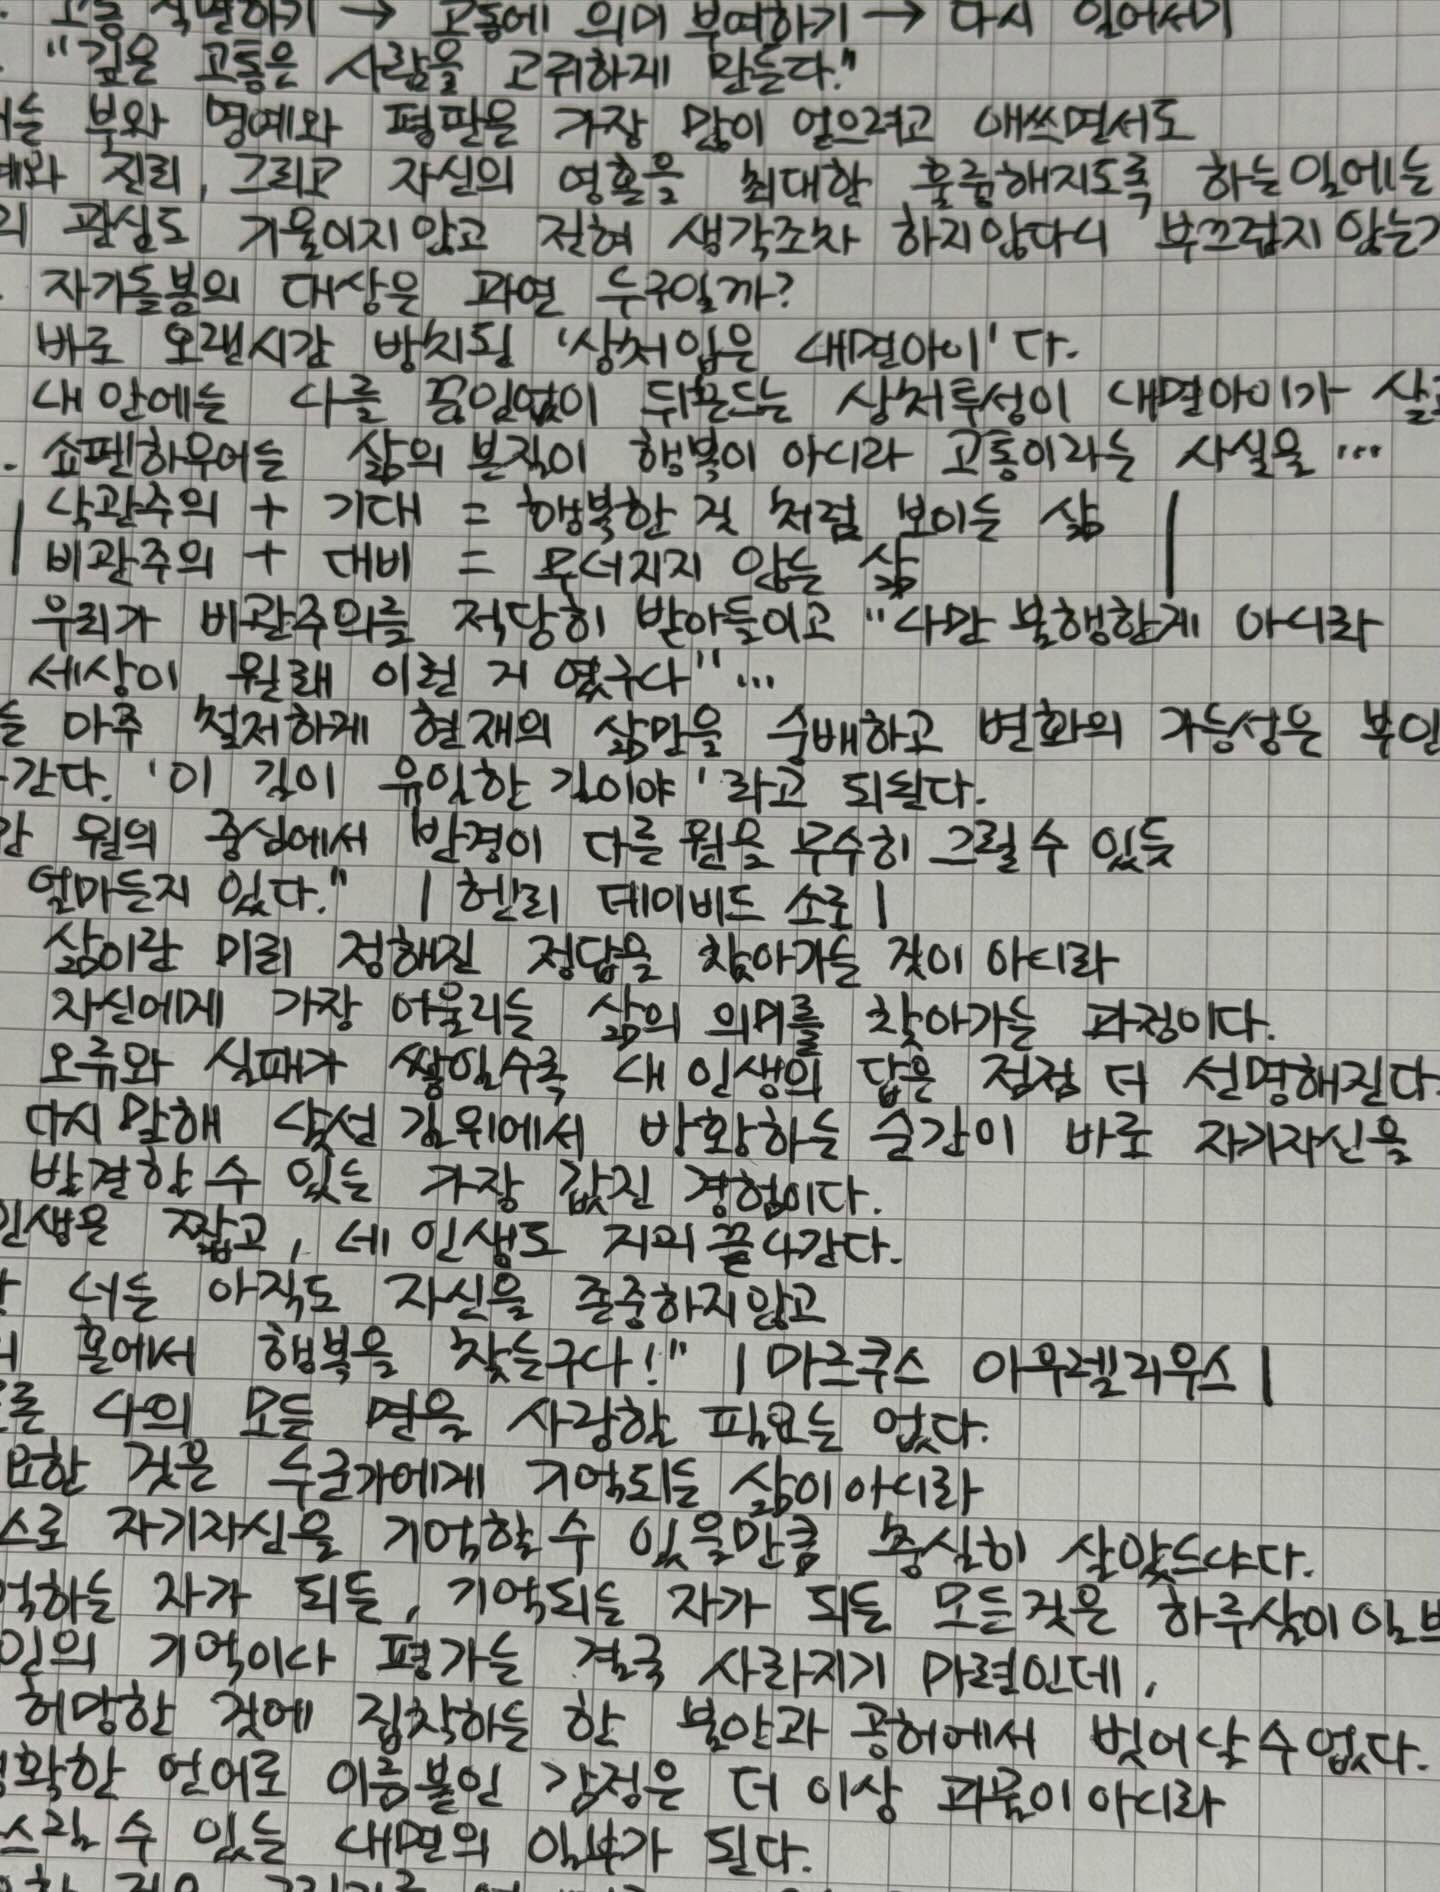 고통 직면하기 → 고통에 의미 부여하기 → 다시 일어서기
"깊은 고통은 사람을 고귀하게 만든다."
는 부와 명예와 평판을 가장 많이 얻으려고 애쓰면서도
진리, 그리고 자신의 영혼을 최대한 훌륭해지도록 하는일에는
관심도 기울이지않고 전혀 생각조차 하지않다니 부끄럽지 않는가
자기돌봄의 대상은 과연 누구일까?
바로 오랜시간 방치된 '상처입은 내면아이'다.
내 안에는 나를 끊임없이 뒤흔드는 상처투성이 내면아이가 살고
. 쇼펜하우어는 삶의 본질이 행복이 아니라 고통이라는 사실을 …
| 낙관주의 + 기대 = 행복한 것 처럼 보이는 삶 |
| 비관주의 + 대비 = 무너지지 않는 삶
우리가 비관주의를 적당히 받아들이고 "나만 불행한게 아니라
세상이 원래 이런 거 였구나"…
는 아주 철저하게 현재의 삶만을 숭배하고 변화의 가능성은 부인
간다. '이 길이 유일한 길이야'라고 되뇐다.
원의 중심에서 반경이 다른 원을 무수히 그릴 수 있듯
얼마든지 있다." | 헨리 데이비드 소로 |
삶이란 미리 정해진 정답을 찾아가는 것이 아니라
자신에게 가장 어울리는 삶의 의미를 찾아가는 과정이다.
오류와 실패가 쌓일수록 내 인생의 답은 점점 더 선명해진다.
다시 말해 낯선 길위에서 방황하는 순간이 바로 자기자신을
발견할 수 있는 가장 값진 경험이다.
인생은 짧고, 네 인생도 거의 끝나간다.
너는 아직도 자신을 존중하지않고
혼에서 행복을 찾는구나!" | 마르쿠스 아우렐리우스 |
나의 모든 면을 사랑할 필요는 없다.
요한 것은 누군가에게 기억되는 삶이아니라
스로 자기자신을 기억할 수 있을만큼 충실히 살았느냐다.
억하는 자가 되든, 기억되는 자가 되든 모든것은 하루살이일뿐
인의 기억이나 평가는 결국 사라지기 마련인데,
허망한 것에 집착하는 한 불안과 공허에서 벗어날 수 없다.
확한 언어로 이름붙인 감정은 더 이상 괴물이 아니라
스릴 수 있는 내면의 일부가 된다.